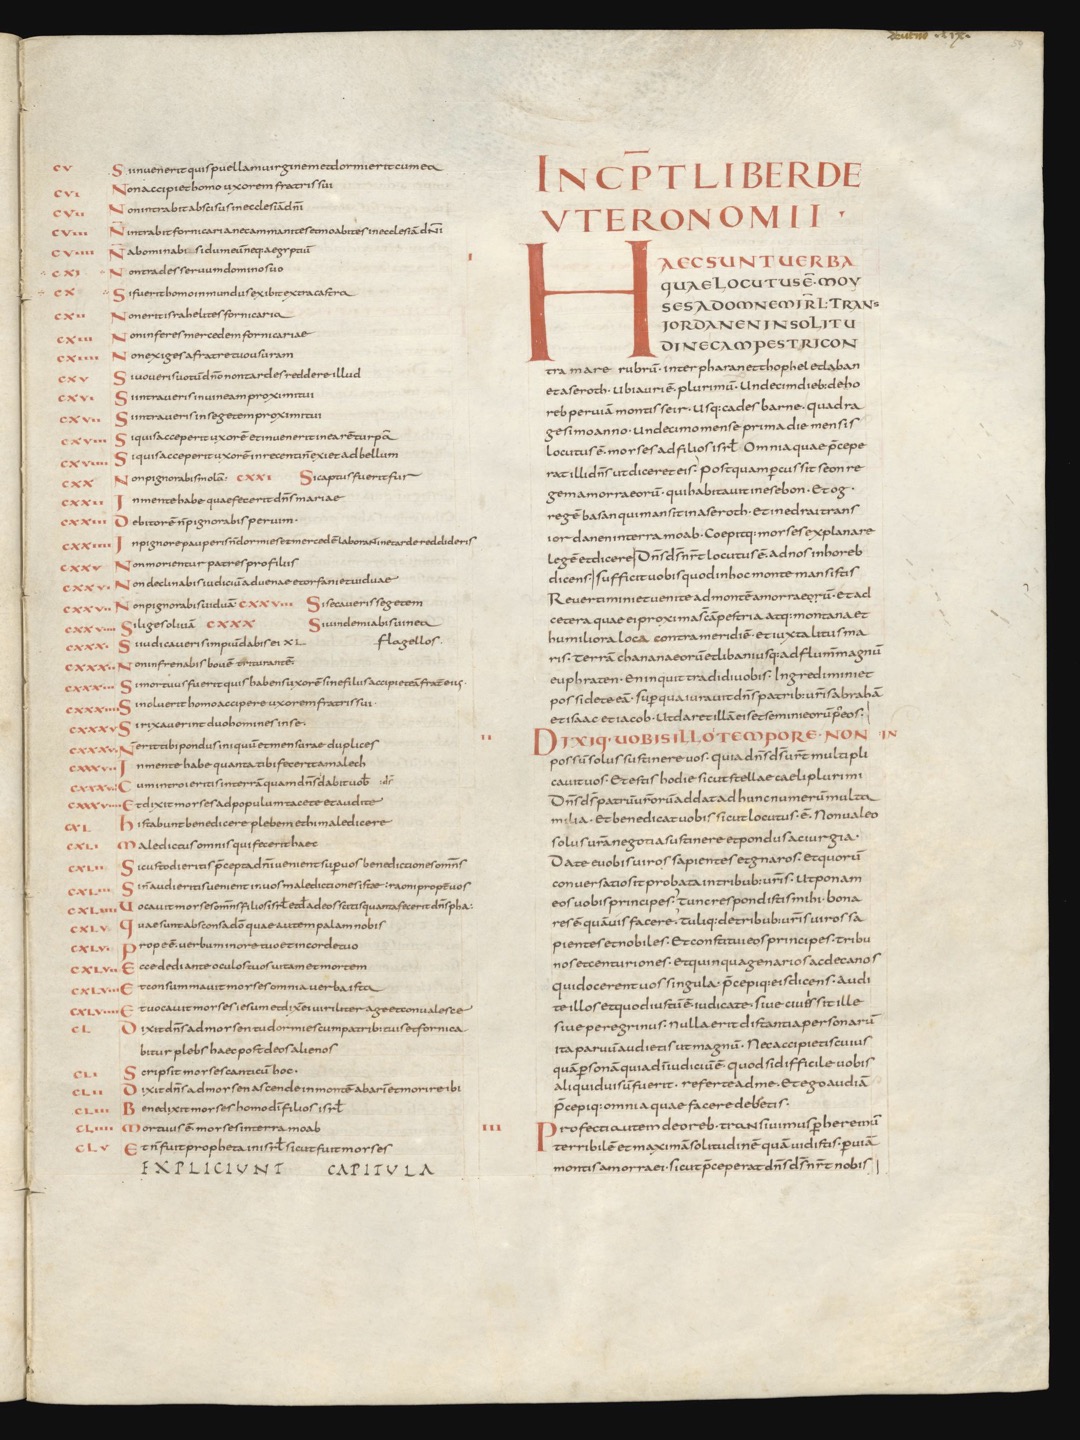 CV Si invenerit quis puellam virginem et dormierit cum ea
CVI Non accipiet homo uxorem fratris sui
CVII Non intrabit abscisus in ecclesiā dn̄i
CVIII N̄ intrabit fornicaria nec ammanites et moabites in ecclesiā dn̄i
CVIIII N̄ abominabi
CXI Non trades servum domino suo
CX Si fuerit homo inmundus exibit extra castra
CXII Non erit israhelites fornicaria
CXIII Non inferes mercedem fornicariae
CXIIII Non exiges a fratre tuo usuram
CXV Si voveris votū dn̄o non tardes reddere illud
CXVI Si intraveris in vineam proximi tui
CXVII Si intraveris in segetem proximi tui
CXVIII Si quis acceperit uxorē et invenerit in ea rē turpē
CXVIIII Si quis acceperit uxorē in recenti n̄ exiet ad bellum
CXX Non pignorabis molā· CXXI Si captus fuerit fur
CXXII In mente habe quae fecerit dn̄s mariae
CXXIII Debitorē n̄ pignorabis per vim·
CXXIIII In pignore pauperis n̄ dormies et mercedē laborantis ne tarde reddideris
CXXV Non morientur patres pro filiis
CXXVI Non declinabis iudiciū advenae et orfani et viduae
CXXVII Non pignorabis viduā CXXVIII Si secaveris segetem
CXXVIIII Si liges olivā CXXX Si vindemiabis vinea
CXXXI Si iudicaveri impiū dabis ei XL flagellos·
CXXXII Non infrenabis bovē triturantē·
CXXXIII Si mortuus fuerit quis habens uxorē sine filiis accipiet eā frat̄ eius·
CXXXIIII Si noluerit homo accipere uxorem fratris sui·
CXXXV Si rixaverint duo homines inse·
CXXXVI N̄ erit tibi pondus iniquū et mensurae duplices
CXXXVII In mente habe quanta tibi fecerit amalech
CXXXVIII Cum introieritis in terrā quam dn̄s dabit vob̄
CXXXVIIII Et dixit morses ad populum tacete et audite
CXL Hi stabunt benedicere plebem et hi maledicere
CXLI Maledictus omnis qui fecerit haec
CXLII Si custodieritis p̄cepta dn̄i venient sup vos benedictiones omn̄s
CXLIII Si n̄ audieritis venient in vos maledictiones istae
CXLIIII Vocavit morses omn̄s filios isrl̄
CXLV Quae sunt absconsa dō quae autem palam nobis
CXLVI Prope ē· verbum in ore tuo et in corde tuo
CXLVII Ecce dedi ante oculos tuos vitam et mortem
CXLVIII Et consummavit morses omnia verba ista
CXLVIIII Et vocavit morses iesum et dix̄ ei viriliter age et convalesce
CL Dixit dn̄s ad morsen tu dormies cum patribus tuis et fornica
bitur plebs haec post deos alienos
CLI Scripsit morses canticū hoc·
CLII Dixit dn̄s ad morsen ascende in montē abari et morire ibi
CLIII Benedixit morses homo dī filios isrl̄
CLIIII Mortuus ē· morses in terra moab
CLV Et n̄ fuit propheta in isrl̄ sicut fuit morses
EXPLICIUNT CAPITULA
INCP̄T LIBER DE
VTERONOMII
HAEC SUNT UERBA
QUAE LOCUTUS Ē· MOY
SES AD OMNEM IR̄L· TRANS
IORDANEN IN SOLITU
DINE CAMPESTRI CON
tra mare rubrū· inter pharan et thophel et laban
et aseroth· Ubi auri ē· plurimū· Undecim dieb· de ho
reb per viā montis seir· Usq; cades barne· quadra
gesimo anno· Undecimo mense prima die mensis
locutus ē· morses ad filios isrl̄· Omnia quae p̄cepe
rat illi dn̄s ut diceret eis· Postquam percussit seon re
gem amorraeorū· qui habitavit in esebon· Et og·
regē basan qui mansit in aseroth· et in edrai trans
iordanen in terra moab· Coepitq; morses explanare
legē et dicere· Dn̄s ds̄ nr̄ locutus ē· ad nos in horeb
dicens· sufficit vobis quod in hoc monte mansistis
Revertimini et venite ad montē amorraeorū· et ad
cetera quae ei proxima s̄ campestria atq; montana et
humiliora loca contra meridiē· et iuxta litus ma
ris· Terrā chananaeorū et libani usq; ad flumē magnū
euphraten· En inquit tradidi vobis· Ingredimini et
possidete eā· sup qua iuravit dn̄s patrib· vr̄is abrahā
et isaac et iacob· Ut daret illā eis et semini eorū p̄ eos·
II DIXIQ· UOBIS ILLO TEMPORE· NON IN
possū solus sustinere vos· quia dn̄s ds̄ vr̄ multipli
cavit vos· Et estis hodie sicut stellae caeli plurimi
Dn̄s ds̄ patrū vr̄orū addat ad hunc numerū multa
milia· Et benedicat vobis sicut locutus· ē· Non valeo
solus vr̄a negotia sustinere et pondus ac iurgia·
Date e vobis viros sapientes et gnaros· et quorū
conversatio sit probata in tribub· vr̄is· Ut ponam
eos vobis principes· Tunc respondistis mihi· bona
res ē quā vis facere· Tuliq; de tribub· vr̄is viros sa
pientes et nobiles· Et constitui eos principes· tribu
nos et centuriones· et quinquagenarios ac decanos
qui docerent vos singula· p̄cepiq; eis dicens· Audi
te illos et quod iustū ē iudicate· sive civis sit ille
sive peregrinus· Nulla erit distantia personarū
ita parvū audietis ut magnū· Nec accipietis cuius
quā p̄sonā quia dī iudiciū ē· quod si difficile vobis
aliquid visū fuerit· referte ad me· Et ego audiā
p̄cepiq; omnia quae facere debetis·
III Profecti autem de oreb· transivimus p̄ heremū
terribilē et maximā solitudinē quā vidistis· p̄ viā
montis amorraei· sicut p̄ceperat dn̄s ds̄ nr̄ nobis